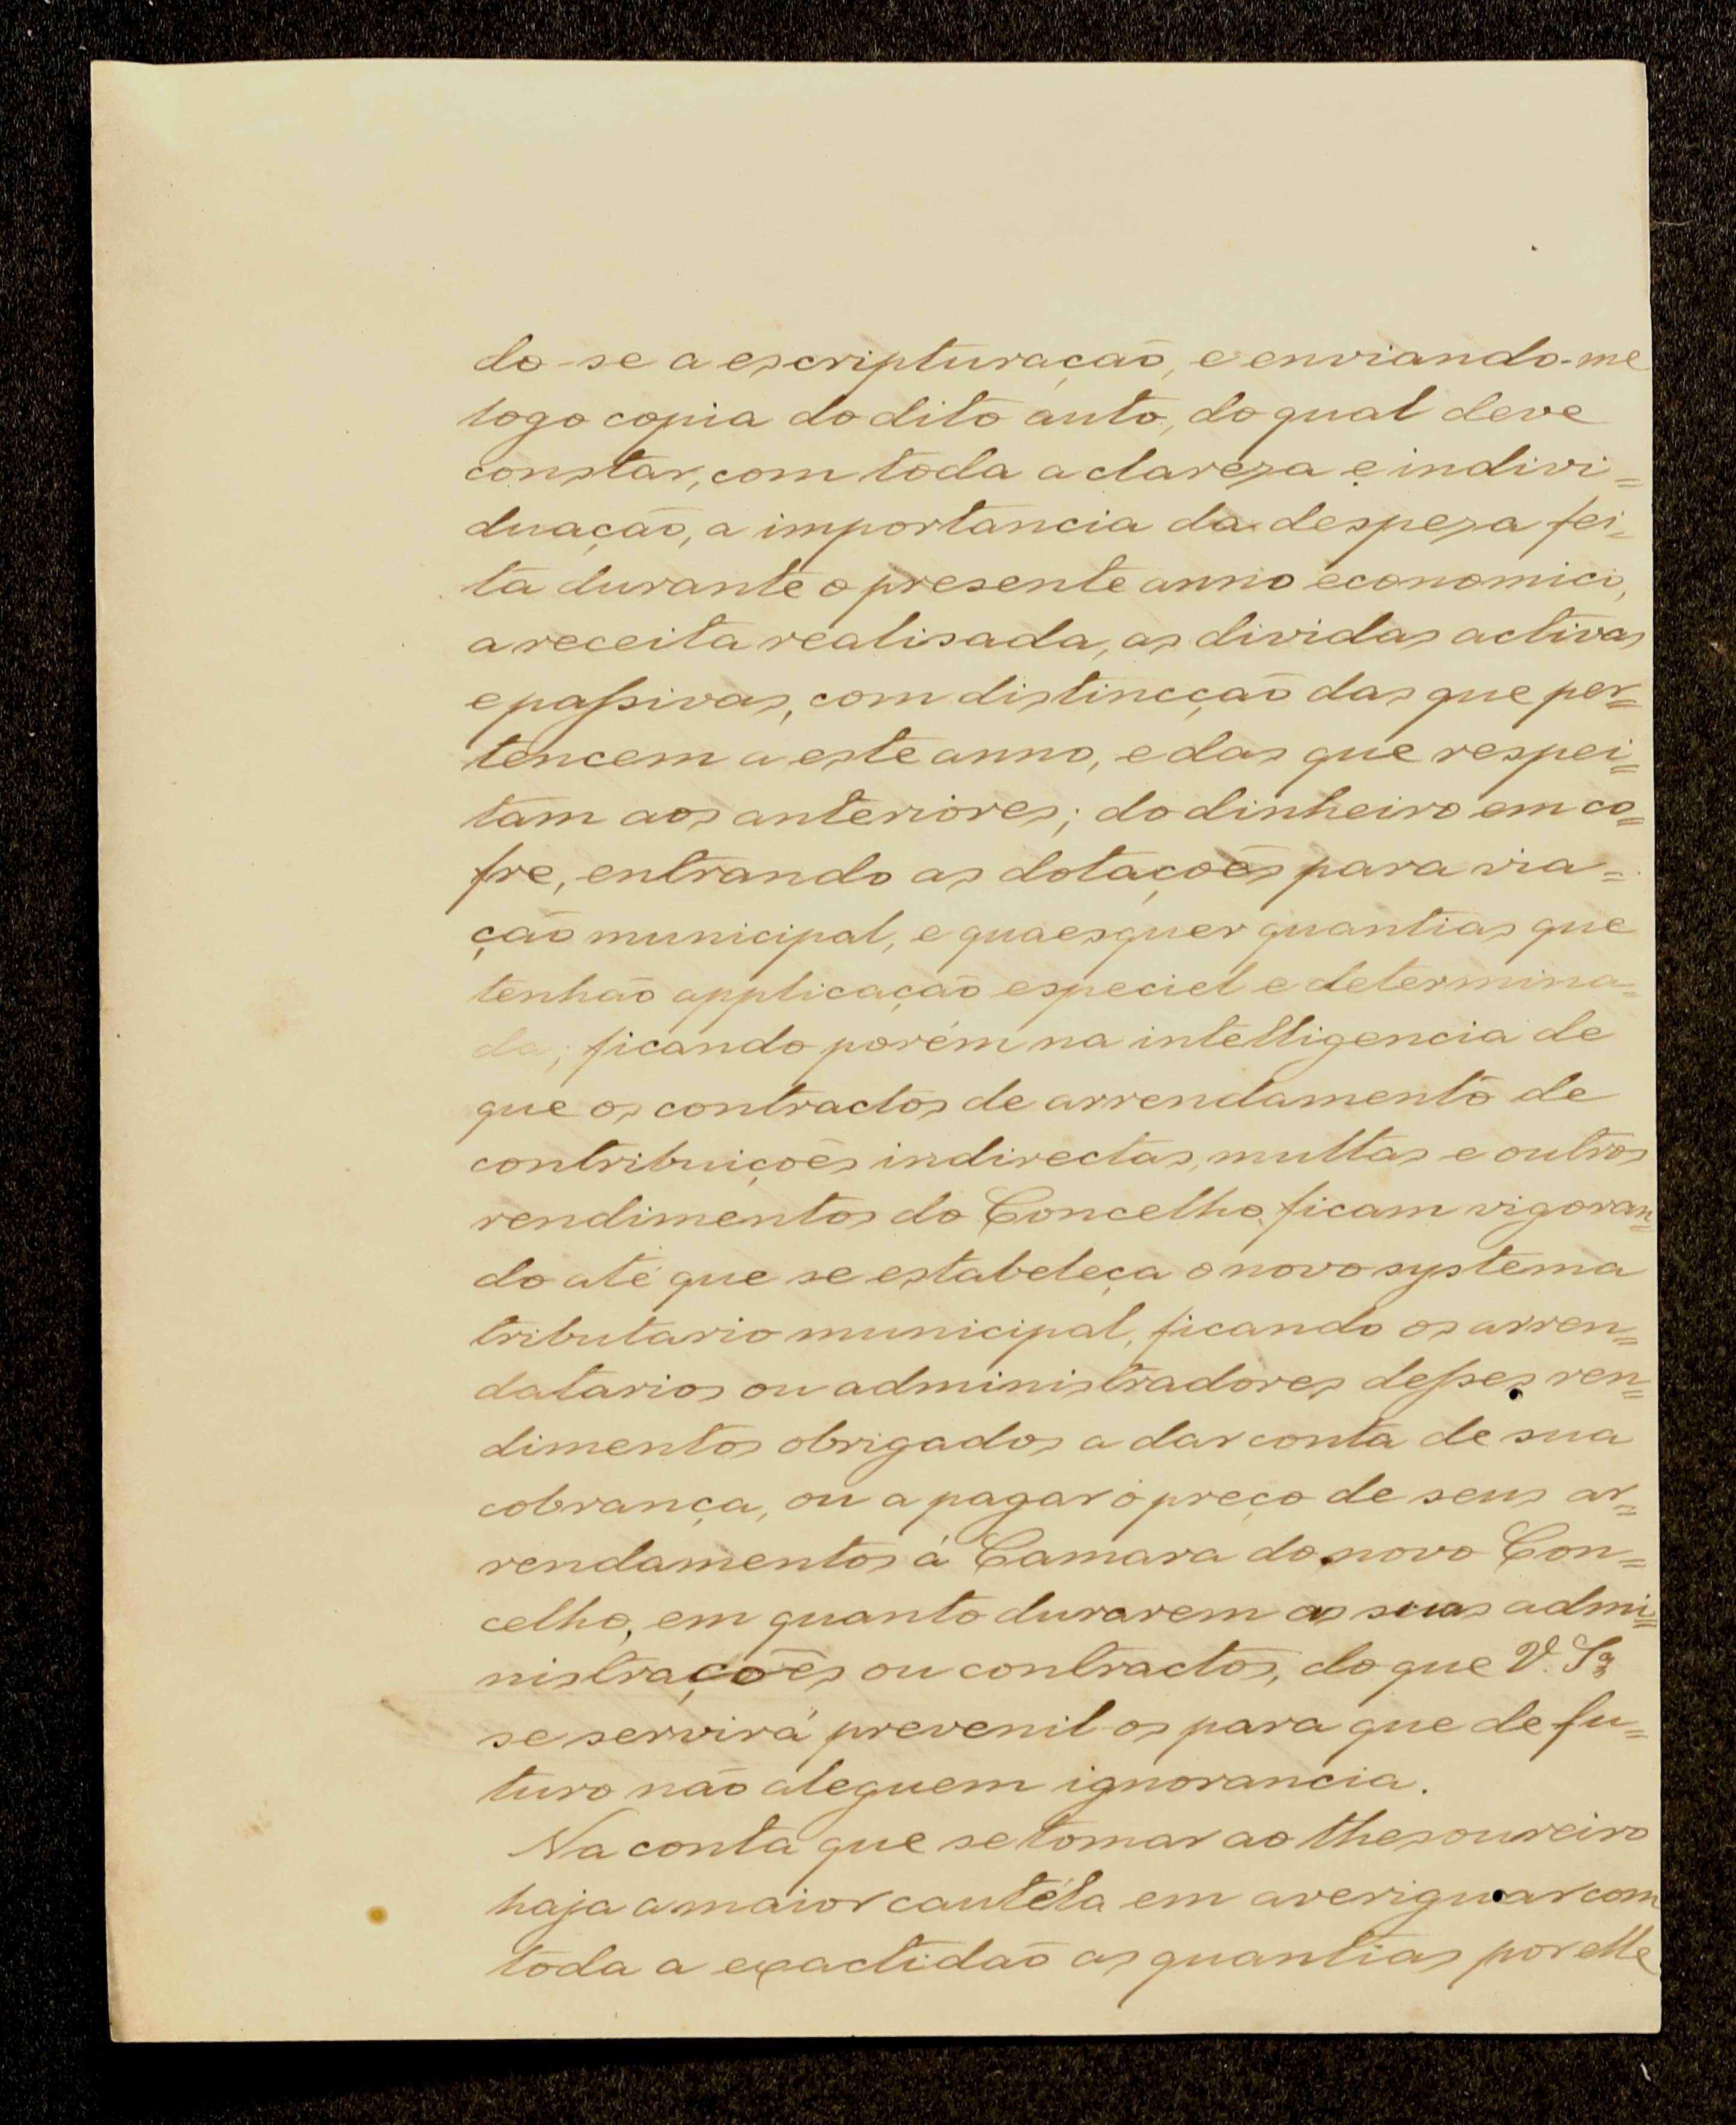 do-se a escripturação, e enviando-me
logo copia do dito auto, do qual deve
constar, com toda a clareza e indivi=
duação, a importancia da despeza fei=
ta durante o presente anno economico,
a receita realisada, as dividas activas
e passivas, com distincção das que per=
tencem a este anno, e das que respei=
tam aos anteriores; do dinheiro em co=
fre, entrando as dotações para via=
ção municipal, e quaesquer quantias que
tenhão applicação especiel e determina=
da; ficando porém na intelligencia de
que os contractos de arrendamento de
contribuições indirectas, multas e outros
rendimentos do Concelho ficam vigoran=
do até que se estabeleça o novo systema
tributario municipal, ficando os arren=
datarios ou administradores desses ren=
dimentos obrigados a dar conta de sua
cobrança, ou a pagar o preço de seus ar=
rendamentos á Camara do novo Con=
celho, em quanto durarem as suas admi=
nistrações ou contractos, do que V. Sª
se servirá prevenil-os para que de fu=
turo não aleguem ignorancia.
Na conta que se tomar ao thesoureiro
haja a maior cautéla em averiguar com
toda a exactidão as quantias por elle